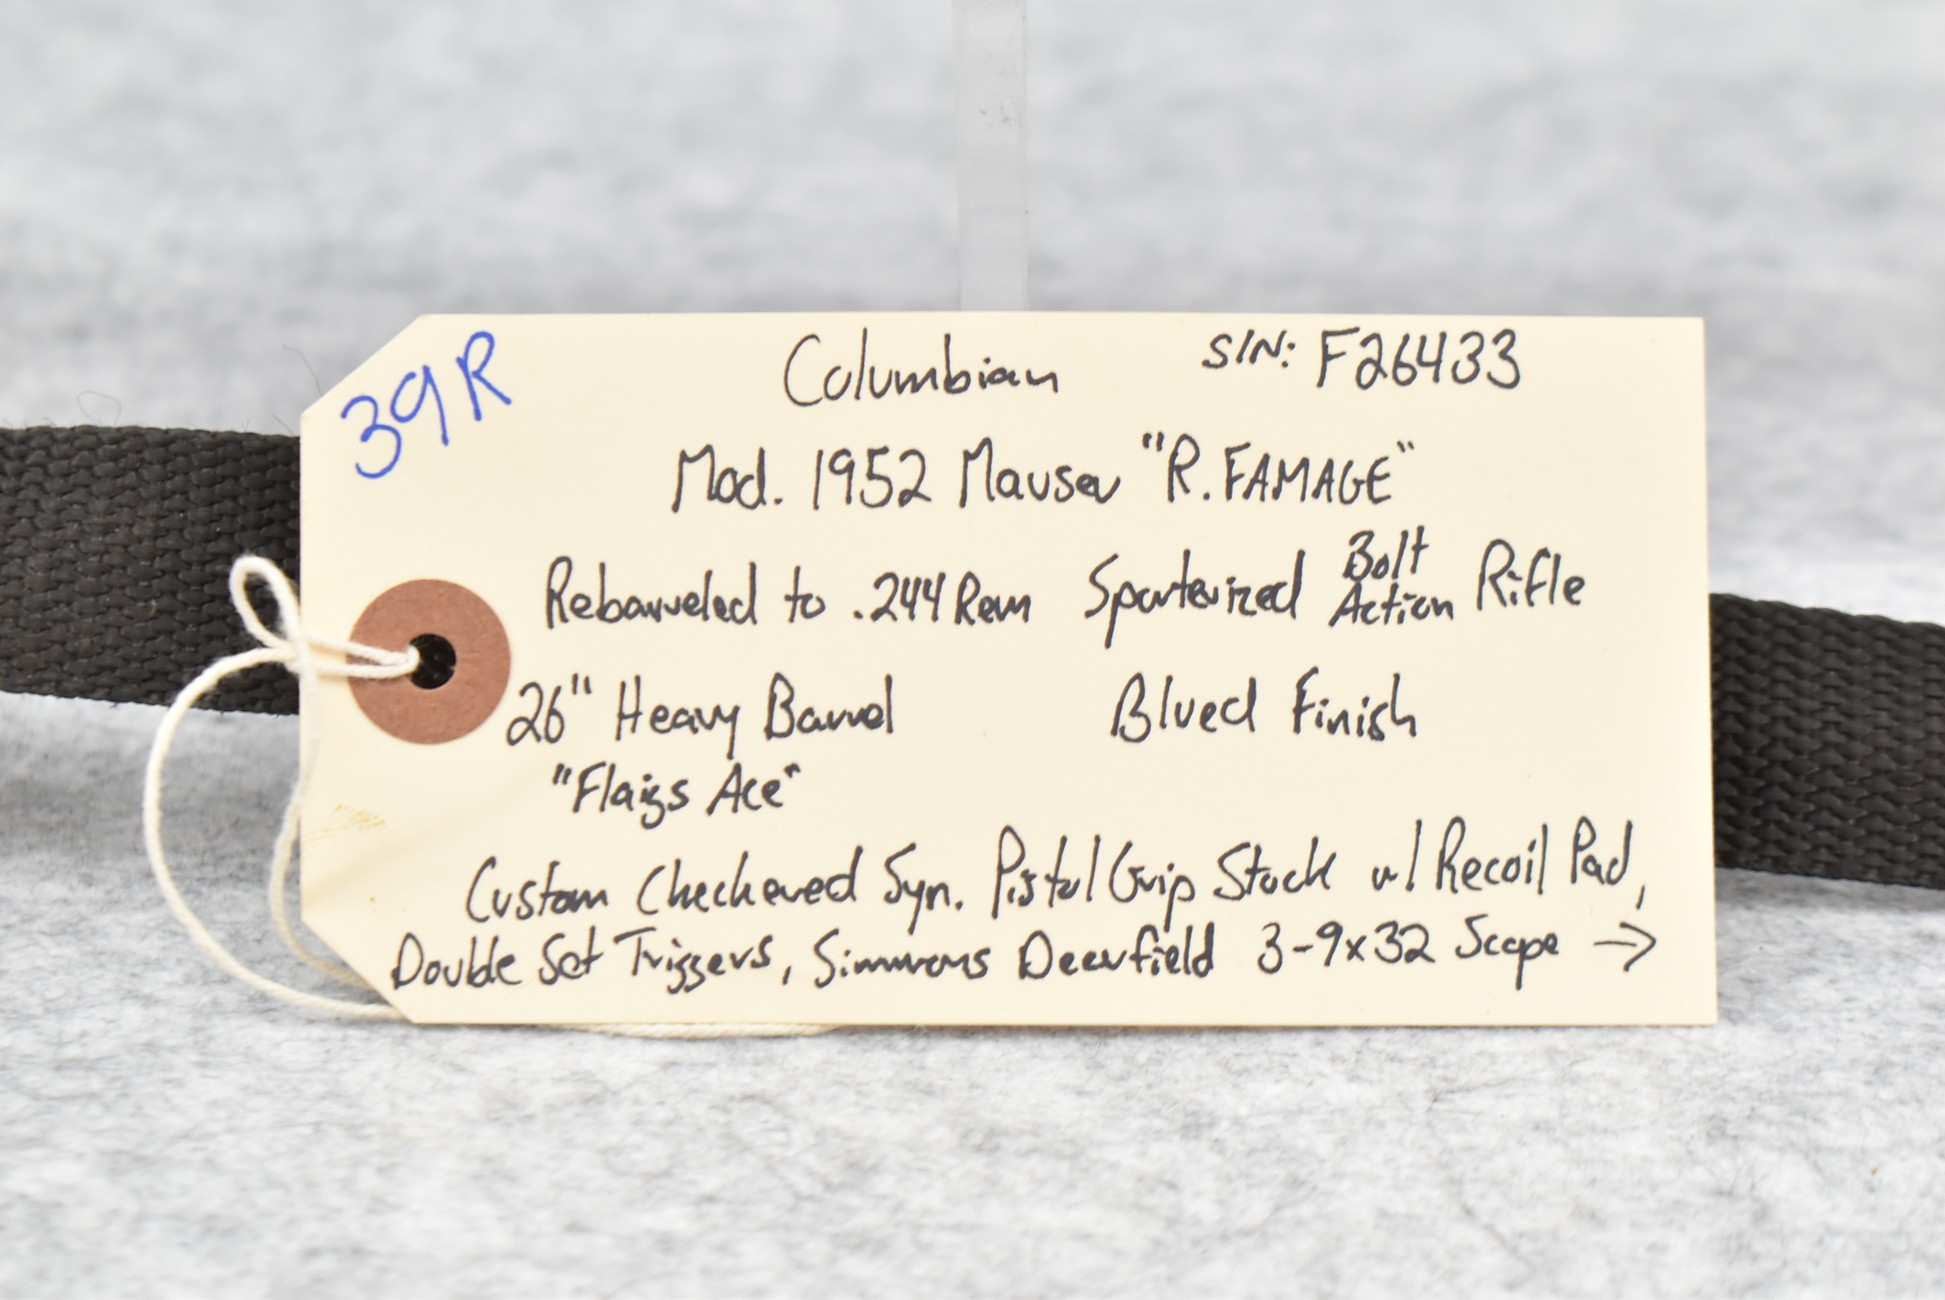 39R
Columbian S/N: F26433
Mod. 1952 Mauser "R. FAMAGE"
Rebarreled to .244 Rem Sporterized Bolt Action Rifle
26" Heavy Barrel Blued Finish
"Flaigs Ace"
Custom Checkered Syn. Pistol Grip Stock w/ Recoil Pad,
Double Set Triggers, Simmons Deerfield 3-9x32 Scope →